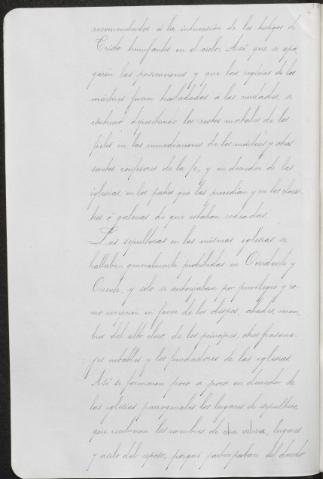 recomendados á la intercesión de los testigos de
Cristo triunfantes en el cielo. Así que se apa-
garon las persecuciones y que las reliquias de los
mártires fueron trasladadas á las ciudades, se
continuó depositando los restos mortales de los
fieles en las inmediaciones de los mártires y otros
santos confesores de la fe, y en derredor de las
iglesias, en los patios que las precedían y en los claus-
tros ó galerías de que estaban rodeadas.
Las sepulturas en las mismas iglesias se
hallaban generalmente prohibidas en Occidente y
Oriente, y sólo se autorizaban por privilegio y co-
mo excepción en favor de los obispos, abades, miem-
bros del alto clero, de los príncipes, otros persona-
jes notables y los fundadores de las iglesias.
Así se formaron poco á poco en derredor de
las iglesias parroquiales los lugares de sepultura,
que recibieron los nombres de lugares
y asilo del reposo, porque participaban del derecho